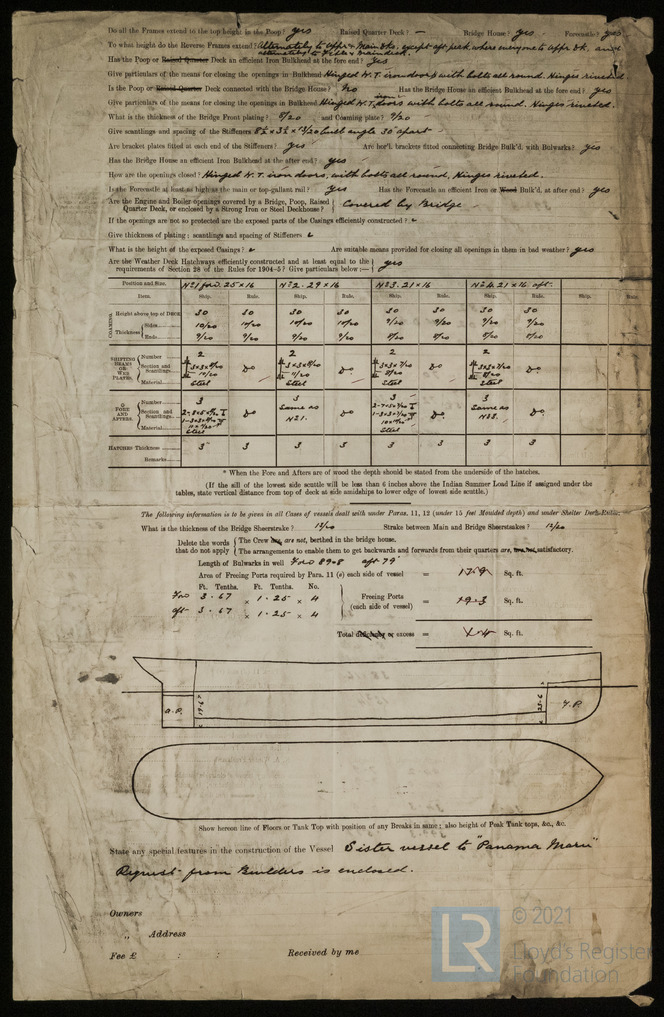 Do all the Frames extend to the top height in the Poop? yes Raised Quarter Deck? — Bridge House? yes Forecastle? yes
To what height do the Reverse Frames extend? Alternately to Uppr & Main Dks, except aft peak where everyone to Uppr Dk. and
Has the Poop or Raised Quarter Deck an efficient Iron Bulkhead at the fore end? yes
Give particulars of the means for closing the openings in Bulkhead Hinged W.T. iron doors with bolts all round. Hinges riveted
Is the Poop or Raised Quarter Deck connected with the Bridge House? No Has the Bridge House an efficient Iron Bulkhead at the fore end? yes
Give particulars of the means for closing the openings in Bulkhead Hinged W.T. iron doors with bolts all round. Hinges riveted.
What is the thickness of the Bridge Front plating? 8/20 and Coaming plate? 9/20
Give scantlings and spacing of the Stiffeners bulb angle 30" apart
Are bracket plates fitted at each end of the Stiffeners? yes Are hor'l. brackets fitted connecting Bridge Bulk'd. with Bulwarks? yes
Has the Bridge House an efficient Iron Bulkhead at the after end? yes
How are the openings closed? Hinged W.T. iron doors, with bolts all round, Hinges riveted.
Is the Forecastle at least as high as the main or top-gallant rail? yes Has the Forecastle an efficient Iron or Wood Bulk'd. at after end? yes
Are the Engine and Boiler openings covered by a Bridge, Poop, Raised
Quarter Deck, or enclosed by a Strong Iron or Steel Deckhouse? Covered by Bridge
If the openings are not so protected are the exposed parts of the Casings efficiently constructed?
Give thickness of plating; scantlings and spacing of Stiffeners
What is the height of the exposed Casings? Are suitable means provided for closing all openings in them in bad weather? yes
Are the Weather Deck Hatchways efficiently constructed and at least equal to the
requirements of Section 28 of the Rules for 1904-5? Give particulars below:— yes
Position and Size. No 1 ford. 25 × 16 No 2. 29 × 16 No 3. 21 × 16 No 4. 21 × 16 aft.
Item. Ship. Rule. Ship. Rule. Ship. Rule. Ship. Rule. Ship. Rule.
COAMING
Height above top of DECK 30 30 30 30 30 30 30 30
Thickness Sides 10/20 10/20 10/20 10/20 9/20 9/20 9/20 9/20
Ends 9/20 9/20 9/20 9/20 9/20 9/20 9/20 9/20
SHIFTING BEAMS OR WEB PLATES
Number 2 2 2 2
Section and Scantlings Do Do Do Do
Material Steel Steel Steel Steel
FORE AND AFTERS.
Number 3 3 3 3
Section and Scantlings Do Same as No 1. Do Do. Same as No 3. Do.
Material Steel Steel
HATCHES Thickness 3" 3 3 3 3 3 3 3
Remarks
* When the Fore and Afters are of wood the depth should be stated from the underside of the hatches.
(If the sill of the lowest side scuttle will be less than 6 inches above the Indian Summer Load Line if assigned under the
tables, state vertical distance from top of deck at side amidships to lower edge of lowest side scuttle.)
The following information is to be given in all Cases of vessels dealt with under Paras. 11, 12 (under 15 feet Moulded depth) and under Shelter Deck Rules.
What is the thickness of the Bridge Sheerstrake? 12/20 Strake between Main and Bridge Sheerstrakes? 12/20
Delete the words that do not apply
The Crew are, are not, berthed in the bridge house.
The arrangements to enable them to get backwards and forwards from their quarters are, are not, satisfactory.
Length of Bulwarks in well Ford aft 79'
Area of Freeing Ports required by Para. 11 (e) each side of vessel = Sq. ft.
Ft. Tenths. Ft. Tenths. No.
Ford 3.67 × 1.25 × 4
aft 3.67 × 1.25 × 4
Freeing Ports (each side of vessel) = Sq. ft.
Total deficiency or excess = Sq. ft.
A.P. 19.6 23.6 F.P.
Show hereon line of Floors or Tank Top with position of any Breaks in same; also height of Peak Tank tops, &c., &c.
State any special features in the construction of the Vessel Sister vessel to "Panama Maru"
Request from Builders is enclosed.
Owners
„ Address
Fee £ : : Received by me
LR © 2021
Lloyd's Register
Foundation